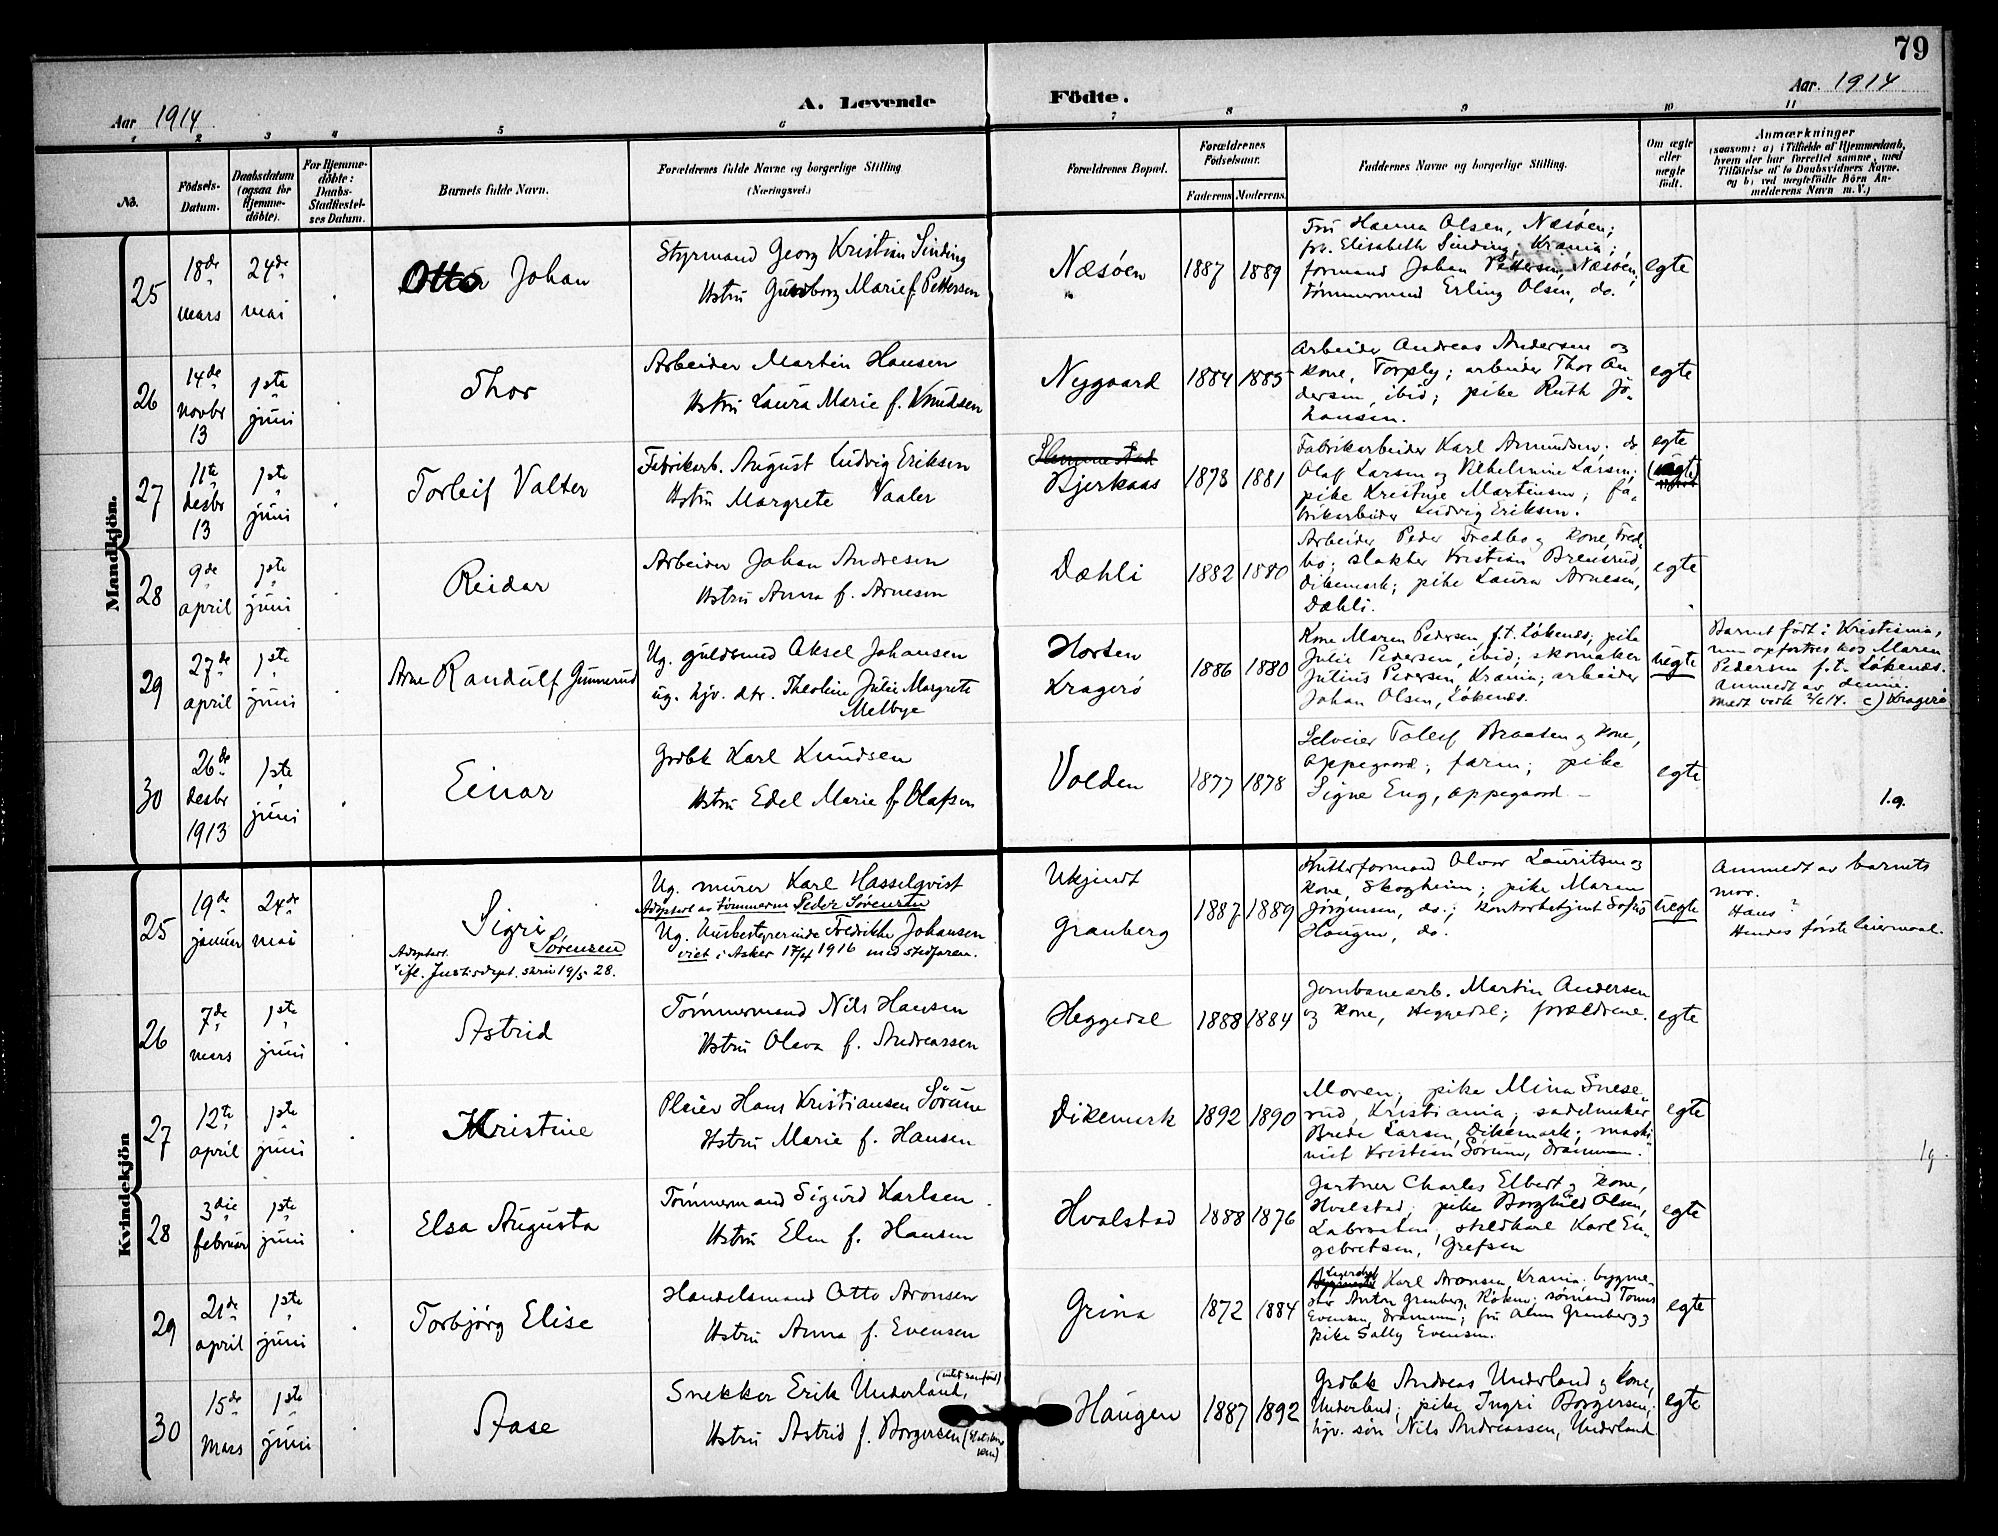 79
Aar 1914
A. Levende Födte.
Aar 1914
1 2 3 4 5 6 7 8 9 10 11
No.
Födsels-Datum.
Daabsdatum (ogsaa for Hjemme-döbte).
For Hjemme-döbte: Daabs-Stadfæstel-ses Datum.
Barnets fulde Navn.
Forældrenes fulde Navne og borgerlige Stilling (Næringsvei.)
Forældrenes Bopæl.
Forældrenes Födselsaar.
Faderens Moderens
Faddernes Navne og borgerlige Stilling.
Om ægte eller uægte födt.
Anmærkninger
(saasom: a) i Tilfælde af Hjemmedaab,
hvem der har forrettet samme, med
Tilföielse af to Daabsvidners Navne,
og b) ved uægtefödte Börn An-
melderens Navn m. V.)
Mandkjön.
25
18de mars
24de mai
Otto Johan
Styrmand Georg Kristian Sinding
Hstru Gundborg Marie f. Pettersen
Næsøen
1887 1889
Fru Hanna Olsen, Næsøen;
frk. Elisabeth Sinding, Krania;
formand Johan Pettersen, Næsøen,
tømmermand Erling Olsen, do.
egte
26
14de novbr 13
1ste juni
Thor
Arbeider Martin Hansen
Hstru Laura Marie f. Knudsen
Nygaard
1884 1885
Arbeider Andreas Andersen og
kone, Torply; arbeider Thor An-
dersen, ibid; pike Ruth Jo-
hansen.
egte
27
11te desbr 13
1ste juni
Torleif Valter
Fabrikarb. August Ludvig Eriksen
Hstru Margrete Vaaler
Slemmestad
Bjerkaas
1878 1881
Fabrikarbeider Karl Amundsen; do
Olaf Larsen og Vilhelmine Larsen;
pike Kristine Martinsen; fa-
brikarbeider Ludvig Eriksen.
egte
28
9de april
1ste juni
Reidar
Arbeider Johan Andresen
Hstru Anna f. Arnesen
Dæhli
1882 1880
Arbeider Peder Fredbo og kone, Fred-
bo; slakter Kristian Brensrud,
Dikemark; pike Laura Arnesen,
Dæhli.
egte
29
27de april
1ste juni
Arne Randulf Gunnerud
Ug. guldsmed Aksel Johansen
ug. hjv. dtr. Theoline Julie Margrete
Melbye
Horten
Kragerø
1886 1880
Kone Maren Pedersen f.t. Løkenes; pike
Julie Pedersen, ibid; skomaker
Julius Pedersen, Krania; arbeider
Johan Olsen, Løkenes.
uegte
Barnet født i Kristiania,
men opfostres hos Maren
Pedersen f.t. Løkenes.
Anmedt av denne.
Kragerø
30
26de desbr 1913
1ste juni
Einar
Grdbk Karl Knudsen
Hstru Edel Marie f. Olafsen
Volden
1877 1878
Selveier Tollef Braaten og kone,
Oppegaard; faren; pike
Signe Eng, Oppegaard –
egte
1.g.
Kvindekjön
25
19de januar
24de mai
Sigri
Sørensen
Adoptert
ifl. Justisdept. skriv 19/5 28.
Ug. murer Karl Hasselqvist
Adoptert av tømmerm Peder Sørensen
Ug. Husbestyrerinde Fredrikke Johansen
viet i Asker 17/4 1916 med stedfaren.
Ukjendt
Granberg
1887 1889
Kutterformand Olvar Lauritsen og
kone, Skogheim; pike Maren
Jørgensen, do.; kontorbetjent Sofus
Haugen, do.
uegte
Anmedt av barnets
mor.
Hans ?
Hendes første leiermaal.
26
7de mars
1ste juni
Astrid
Tømmermand Nils Hansen
Hstru Oleva f. Andreassen
Heggedal
1888 1884
Jernbanearb. Martin Andersen
og kone, Heggedal; forældrene.
egte
27
12te april
1ste juni
Kristine
Pleier Hans Kristiansen Sörum
Hstru Marie f. Hansen
Dikemark
1892 1890
Moren; pike Mina Snese-
rud, Kristiania; sadelmaker
Brede Larsen, Dikemark; maski-
nist Kristian Sørum, Drammen.
egte
1g.
28
3die februar
1ste juni
Elsa Augusta
Tømmermand Sigurd Karlsen
Hstru Elen f. Hansen
Hvalstad
1888 1876
Gartner Charles Elbert og kone,
Hvalstad; pike Borghild Olsen,
Labraaten; staldkarl Karl En-
gebretsen, Grefsen
egte
29
21de april
1ste juni
Torbjørg Elise
Handelsmand Otto Aronsen
Hstru Anna f. Evensen
Grina
1872 1884
Karl Aronsen, Krania; bygme-
ster Anton Granberg, Røken; sømand Tomas
Evensen, Drammen; fru Alma Granberg og
pike Sally Evensen.
egte
30
15de mars
1ste juni
Aase
Snekker Erik Underland,
Hstru Astrid f. Borgersen
Haugen
1887 1892
Grdbk Andreas Underland og kone,
Underland; pike Ingri Borgersen;
hjv. søn Nils Andreassen, Underland
egte